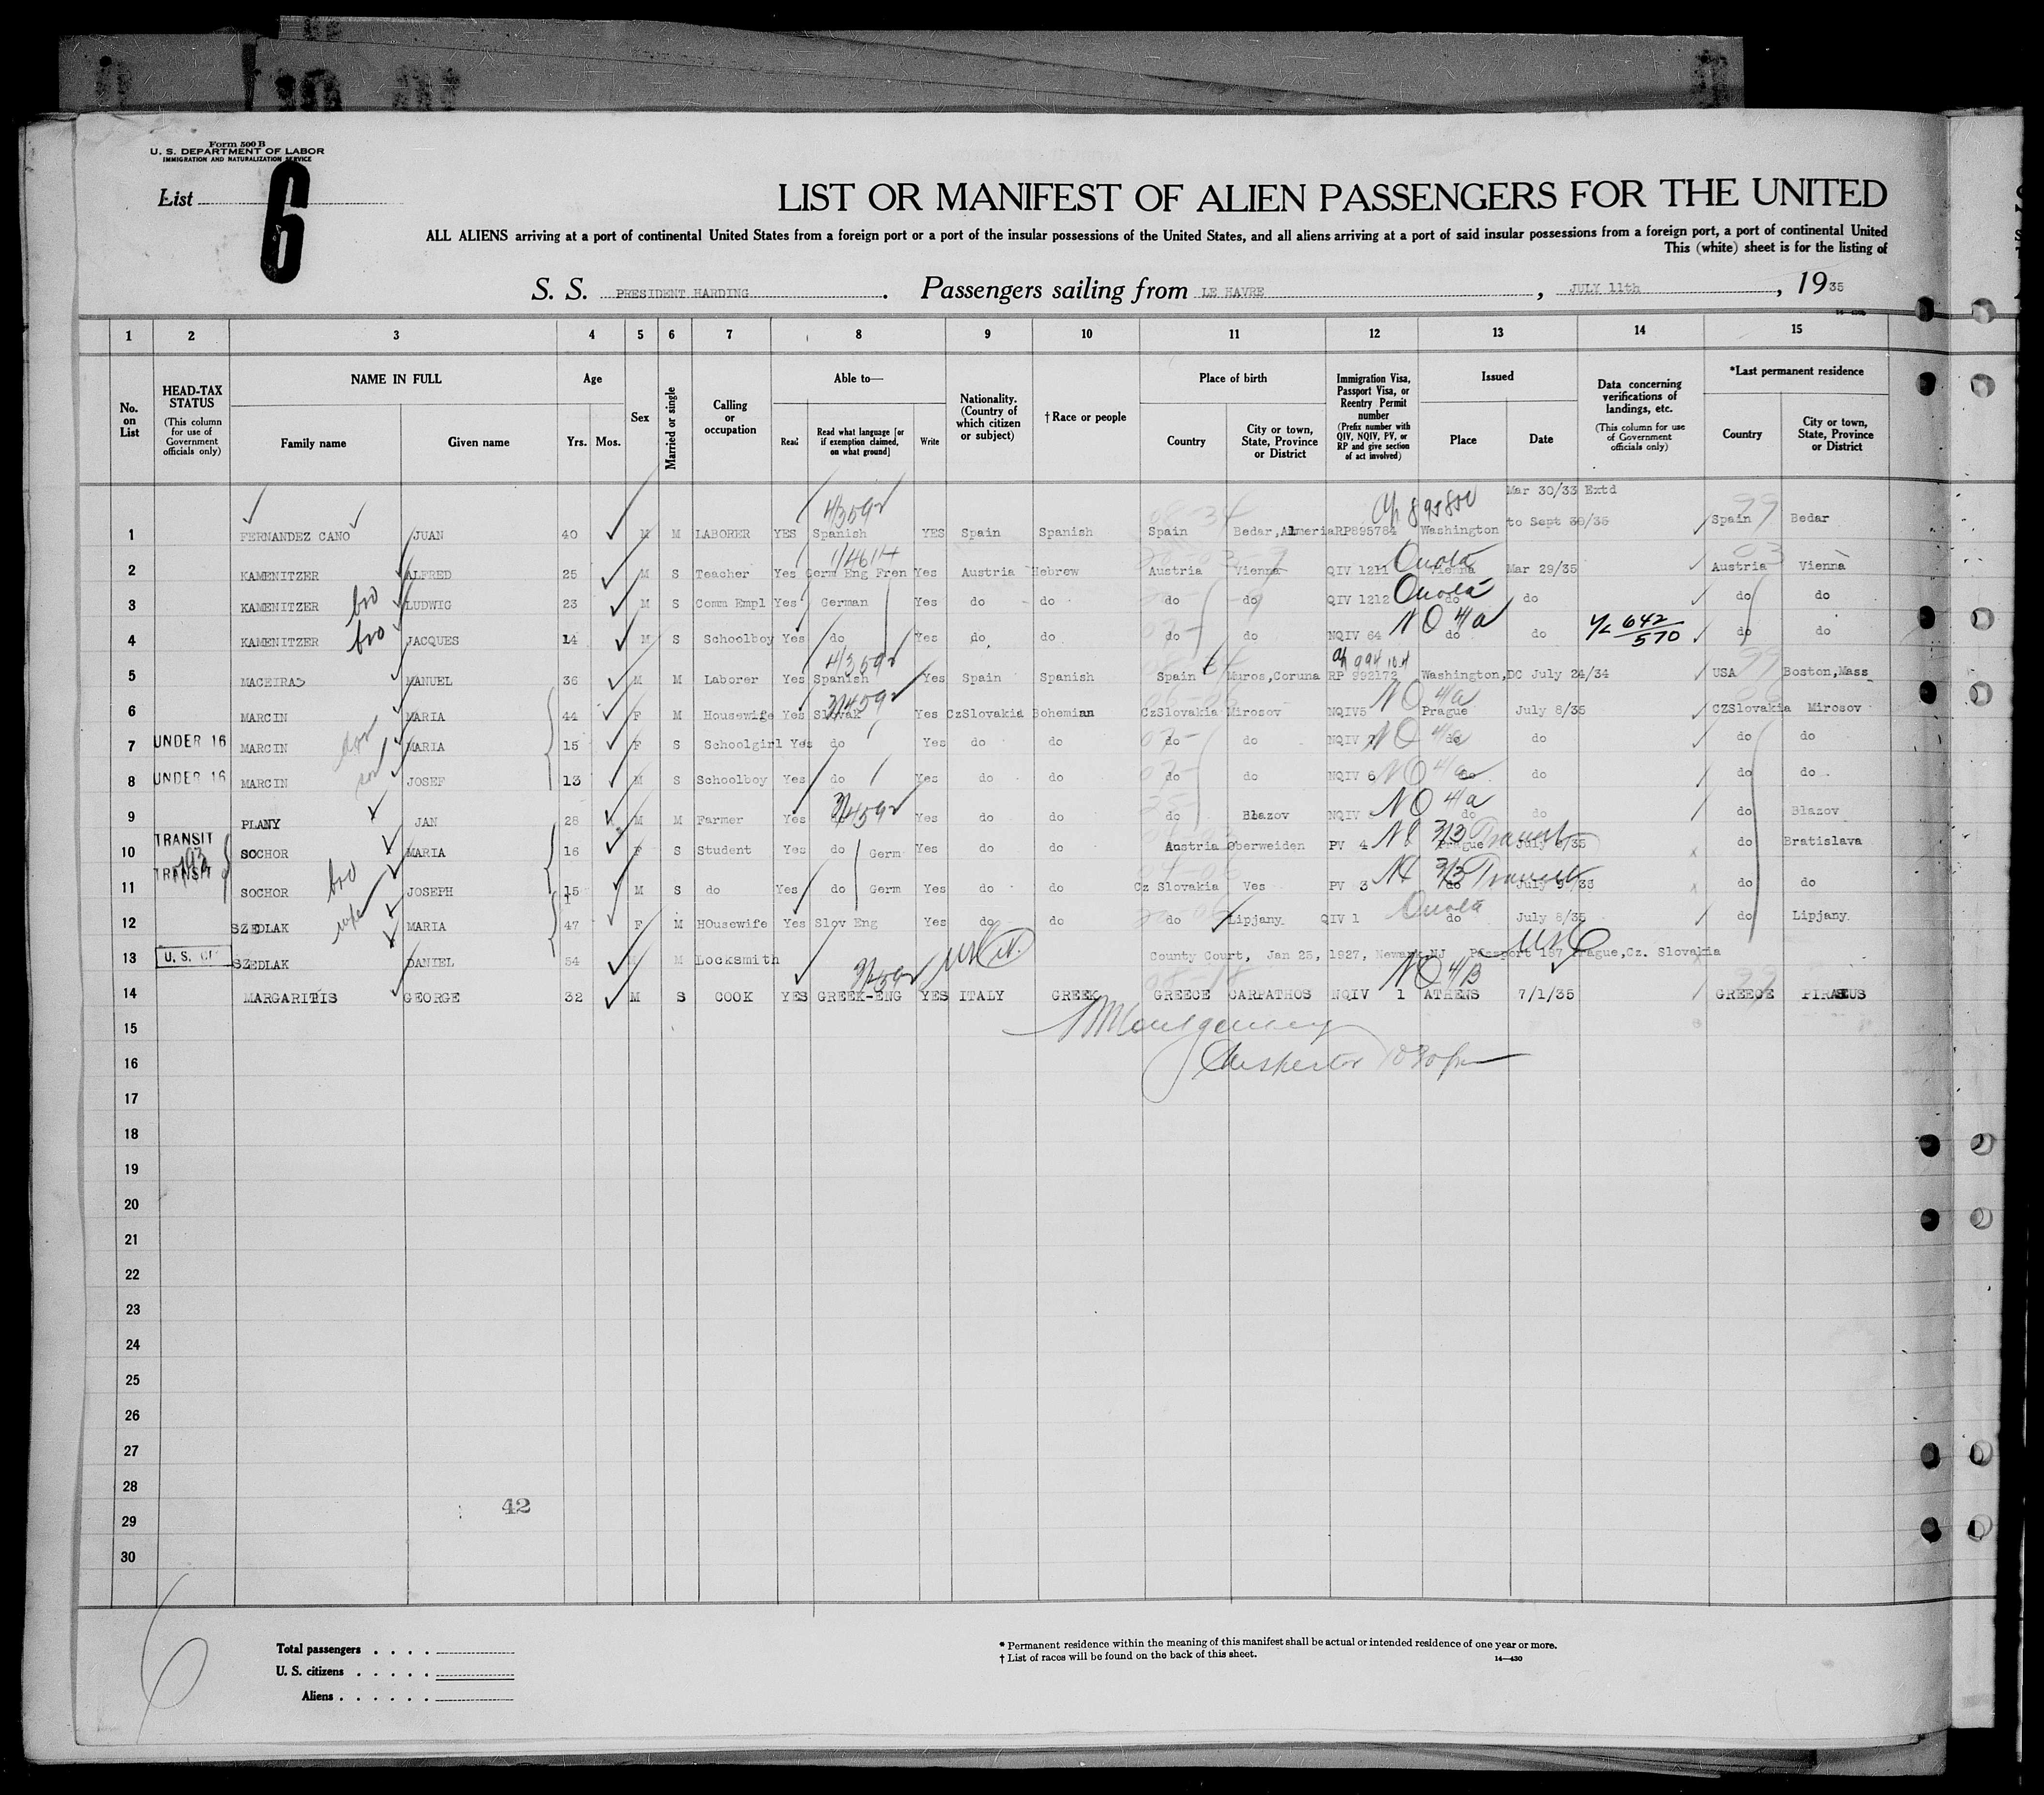 Form 500 B
U. S. DEPARTMENT OF LABOR
IMMIGRATION AND NATURALIZATION SERVICE
List 6
LIST OR MANIFEST OF ALIEN PASSENGERS FOR THE UNITED
ALL ALIENS arriving at a port of continental United States from a foreign port or a port of the insular possessions of the United States, and all aliens arriving at a port of said insular possessions from a foreign port, a port of continental United
This (white) sheet is for the listing of
S. S. PRESIDENT HARDING. Passengers sailing from LE HAVRE, JULY 11th, 1935
1 2 3 4 5 6 7 8 9 10 11 12 13 14 15
No. on List
HEAD-TAX STATUS (This column for use of Government officials only)
NAME IN FULL Family name Given name
Age Yrs. Mos.
Sex
Married or single
Calling or occupation
Able to— Read Read what language [or if exemption claimed, on what ground] Write
Nationality. (Country of which citizen or subject)
† Race or people
Place of birth Country City or town, State, Province or District
Immigration Visa, Passport Visa, or Reentry Permit number (Prefix number with QIV, NQIV, PV, or RP and give section of act involved)
Issued Place Date
Data concerning verifications of landings, etc. (This column for use of Government officials only)
*Last permanent residence Country City or town, State, Province or District
Mar 30/33 Extd
1 FERNANDEZ CANO JUAN 40 M M LABORER YES Spanish YES Spain Spanish Spain Bedar, Almeria RP895784 Washington to Sept 30/35 Spain Bedar
2 KAMENITZER ALFRED 25 M S Teacher Yes Germ Eng Fren Yes Austria Hebrew Austria Vienna QIV 1211 Quota Vienna Mar 29/35 Austria Vienna
3 KAMENITZER bro LUDWIG 23 M S Comm Empl Yes German Yes do do do do QIV 1212 Quota do do do do
4 KAMENITZER bro JACQUES 14 M S Schoolboy Yes do Yes do do do do NQIV 64 NQ 4/a do do 642/570 do do
5 MACEIRAS MANUEL 36 M M Laborer Yes Spanish Yes Spain Spanish Spain Muros, Coruna RP 992172 Washington, DC July 24/34 USA Boston, Mass
6 MARCIN MARIA 44 F M Housewife Yes Slovak Yes CzSlovakia Bohemian CzSlovakia Mirosov NQIV5 NQ 4/a Prague July 8/35 CZSlovakia Mirosov
7 UNDER 16 MARCIN MARIA 15 F S Schoolgirl Yes do Yes do do do do NQIV NQ 4/a do do do do
8 UNDER 16 MARCIN son JOSEF 13 M S Schoolboy Yes do Yes do do do do NQIV 6 NQ 4/a do do do do
9 PLANY JAN 28 M M Farmer Yes Yes do do do Blazov NQIV NQ 4/a do do do Blazov
10 TRANSIT SOCHOR MARIA 16 F S Student Yes do Germ Yes do do Austria Oberweiden PV 4 3/3 Transit Prague July 8/35 do Bratislava
11 TRANSIT SOCHOR bro JOSEPH 15 M S do Yes do Germ Yes do do Cz Slovakia Ves PV 3 3/3 Transit do July 9/35 do do
12 SZEDLAK wife MARIA 47 F M HOusewife Yes Slov Eng Yes do do do Lipjany QIV 1 Quota do July 8/35 do Lipjany.
13 U. S. CIT SZEDLAK DANIEL 54 M M Locksmith County Court, Jan 25, 1927, Newark, NJ Passport 187 Prague, Cz. Slovakia
14 MARGARITIS GEORGE 32 M S COOK YES GREEK-ENG YES ITALY GREEK GREECE CARPATHOS NQIV 1 NQ 4/B ATHENS 7/1/35 GREECE PIRAEUS
15 Montgomery
16 Inspector 1030 pm
17
18
19
20
21
22
23
24
25
26
27
28
42
29
30
6
Total passengers . . . .
U. S. citizens . . . . .
Aliens . . . . . .
* Permanent residence within the meaning of this manifest shall be actual or intended residence of one year or more.
† List of races will be found on the back of this sheet.
14—430